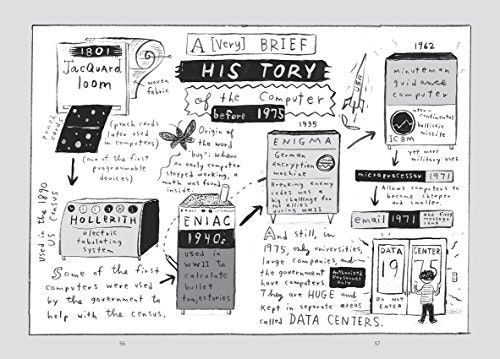 A [Very] BRIEF
HISTORY
of the Computer
before 1975
1801
JacQUARd
loom
woven
fabric
punch
cards
(punch cards
later used
in computers)
(one of the first
programmable
devices)
Origin
of the
word
"bug": When
an early computer
stopped working, a
moth was found
inside.
Used in the 1890
US Census
HOLLERITH
electric
tabulating
system
Some of the first
computers were used
by the government to
help with the census.
ENIAC
1940s
used in
WWII to
calculate
bullet
trajectories
1935
ENIGMA
German
encryption
machine
Breaking enemy
codes was a
big challenge
for the
allies
during WWII
And still, in
1975, only universities,
large companies, and
the government
have computers.
They are HUGE and
kept in separate areas
called DATA CENTERS.
Authorized
Personnel
Only
USA
1962
minuteman
guidance
computer
ICBM
inter-
continental
ballistic
missile
yet more
military uses
microprocessor 1971
Allows computers to
become cheaper
and smaller.
email 1971
the first
message
sent
DATA CENTER
19 75
DO NOT
ENTER
56
57